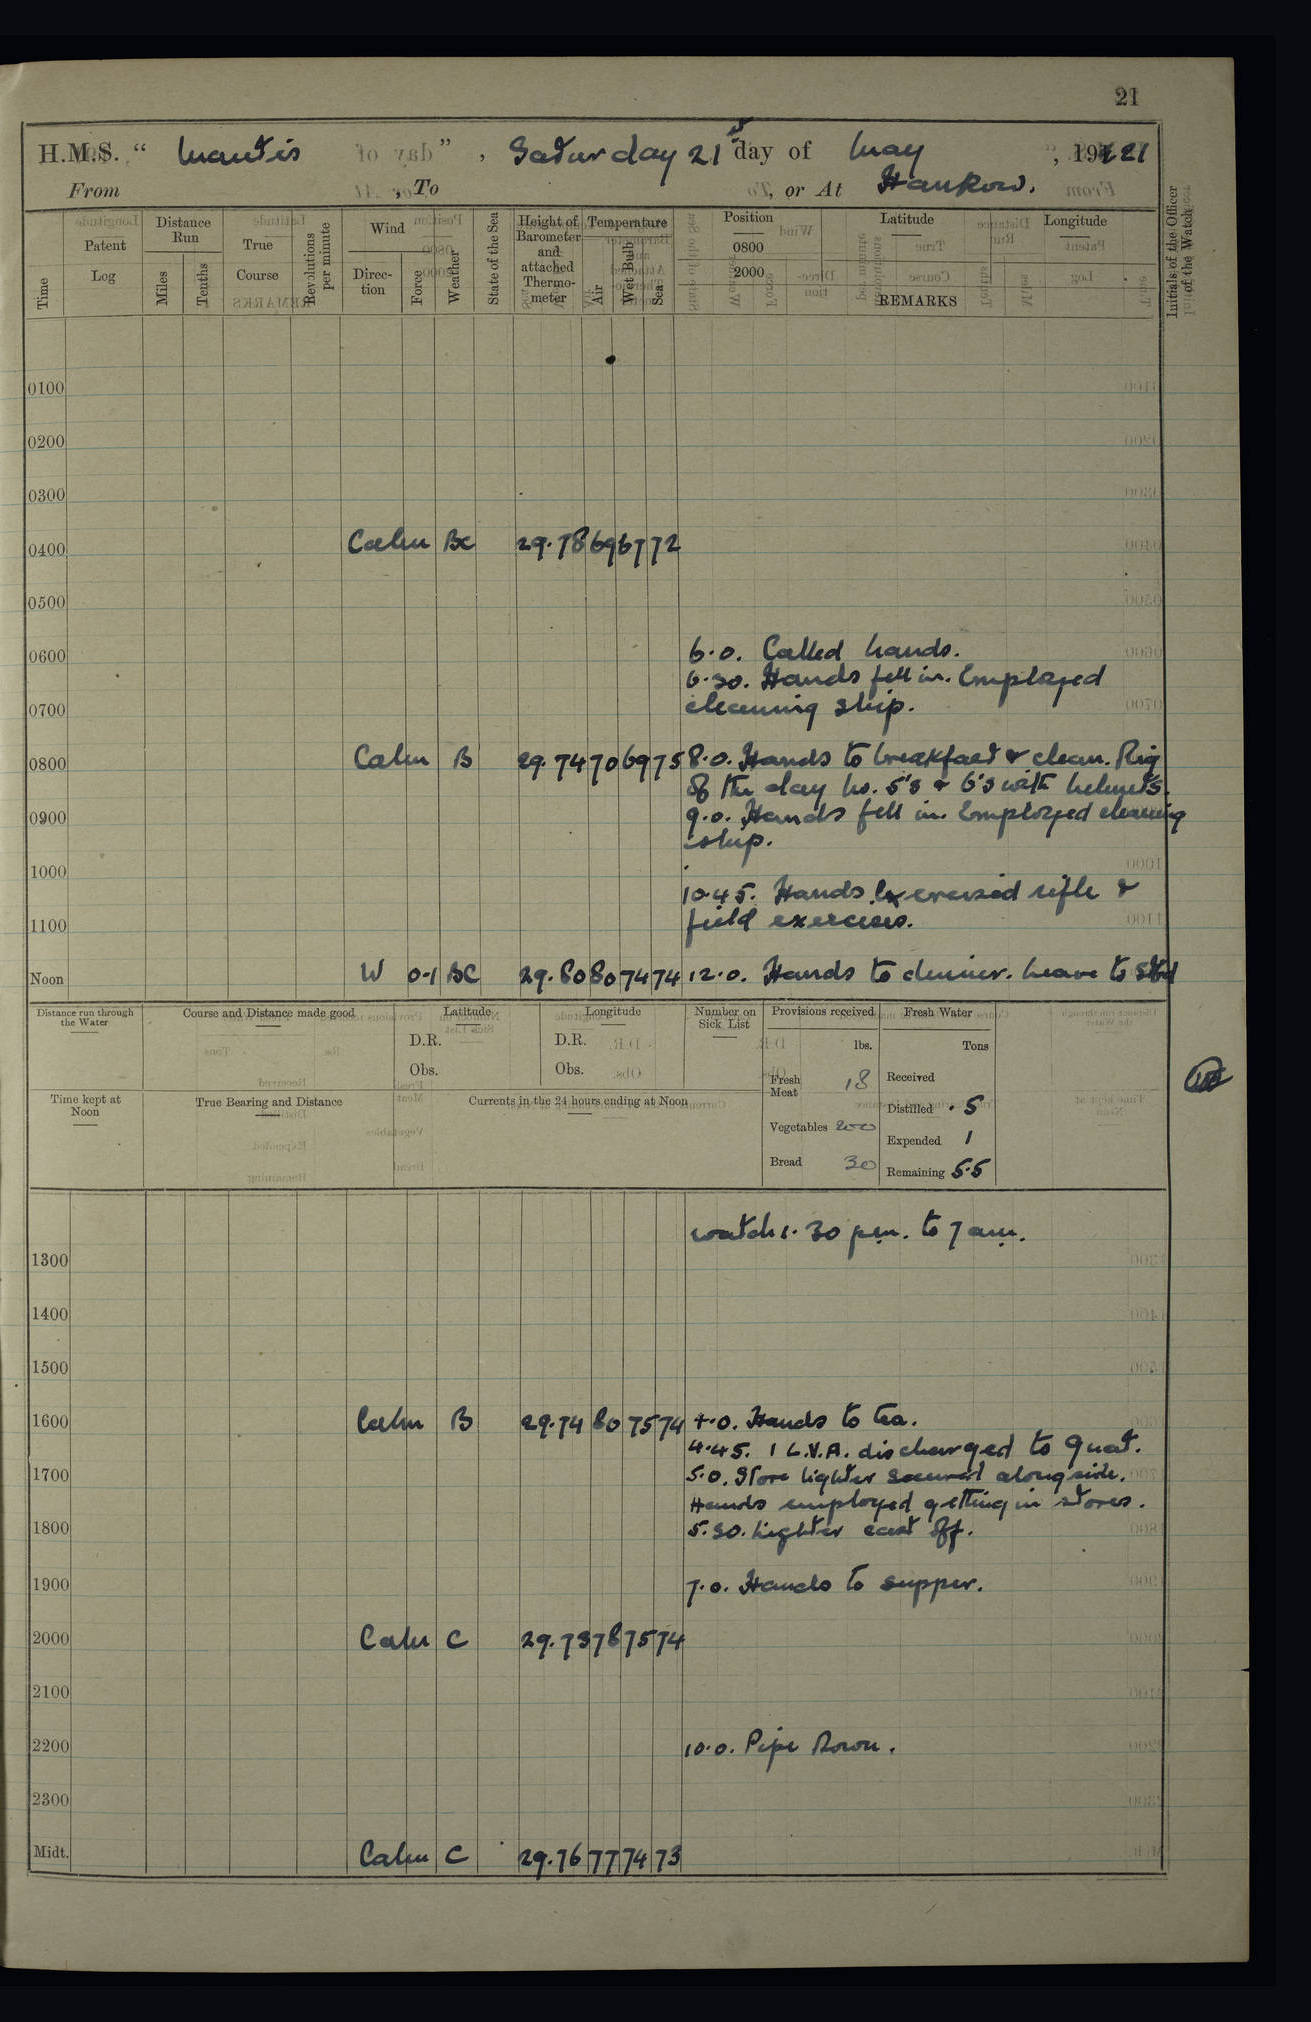 21
H.M.S. " Mantis ", Saturday 21st day of May, 1921
From , To , or At Hankow.
Time
Patent Log
Distance Run
Miles
Tenths
True Course
Revolutions per minute
Wind
Direc-tion
Force
Weather
State of the Sea
Height of Barometer and attached Thermo-meter
Temperature
Air
Wet Bulb
Sea
Position
0800
2000
Latitude
Longitude
REMARKS
Initials of the Officer of the Watch
0100
0200
0300
0400 Calm Bc 29.78 69 67 72
0500
0600 6.0. Called hands.
6.30. Hands fell in. Employed
0700 cleaning ship.
0800 Calm B 29.74 70 69 75 8.0. Hands to breakfast & clean. Rig
of the day No. 5's & 6's with helmets.
0900 9.0. Hands fell in. Employed cleaning
ship.
1000
10.45. Hands Exercised rifle &
1100 field exercises.
Noon W 0-1 BC 29.80 80 74 74 12.0. Hands to dinner. Leave to Stbd
Distance run through the Water
Course and Distance made good
Latitude
D.R.
Obs.
Longitude
D.R.
Obs.
Number on Sick List
Provisions received
lbs.
Fresh Meat 18
Vegetables 200
Bread 30
Fresh Water
Tons
Received
Distilled .5
Expended 1
Remaining 5.5
Time kept at Noon
True Bearing and Distance
Currents in the 24 hours ending at Noon
watch 1.30 pm. to 7 am.
1300
1400
1500
1600 Calm B 29.74 80 75 74 4.0. Hands to tea.
4.45. 1 L.V.A. discharged to Gnat.
1700 5.0. Store lighter secured alongside.
Hands employed getting in stores.
1800 5.30. Lighter cast off.
1900 7.0. Hands to supper.
2000 Calm C 29.73 78 75 74
2100
2200 10.0. Pipe Down.
2300
Midt. Calm C 29.76 77 74 73